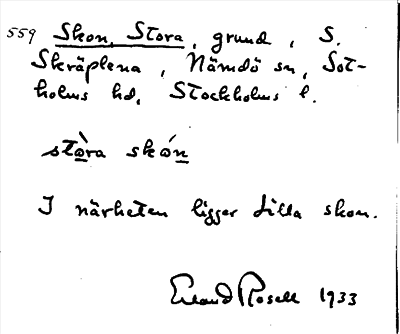 559 Skon, Stora, grund, S.
Skräplena, Nämdö sn, Sot-
holms hd, Stockholms l.
stòra skón
I närheten ligger Lilla skon.
Erland Rosell 1933